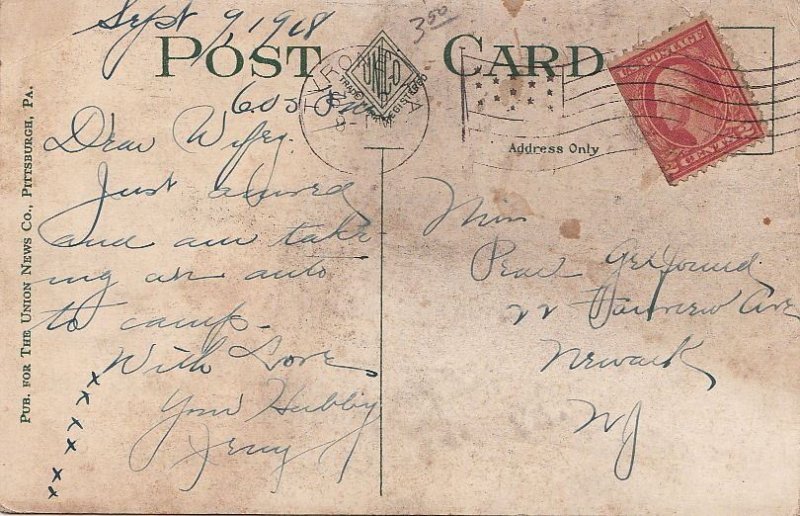 Sept 9, 1918
3.50
POST CARD
UNECO
TRADE REGISTERED
U.S. POSTAGE
2 CENTS 2
Address Only
605
Dear Wifey.
Just arived
and am tak-
ing an auto
to camp.
With Love
Your Hubby
x x x x x x
Miss
Pearl
22 Fairview Ave
Newark
NJ
PUB. FOR THE UNION NEWS CO., PITTSBURGH, PA.